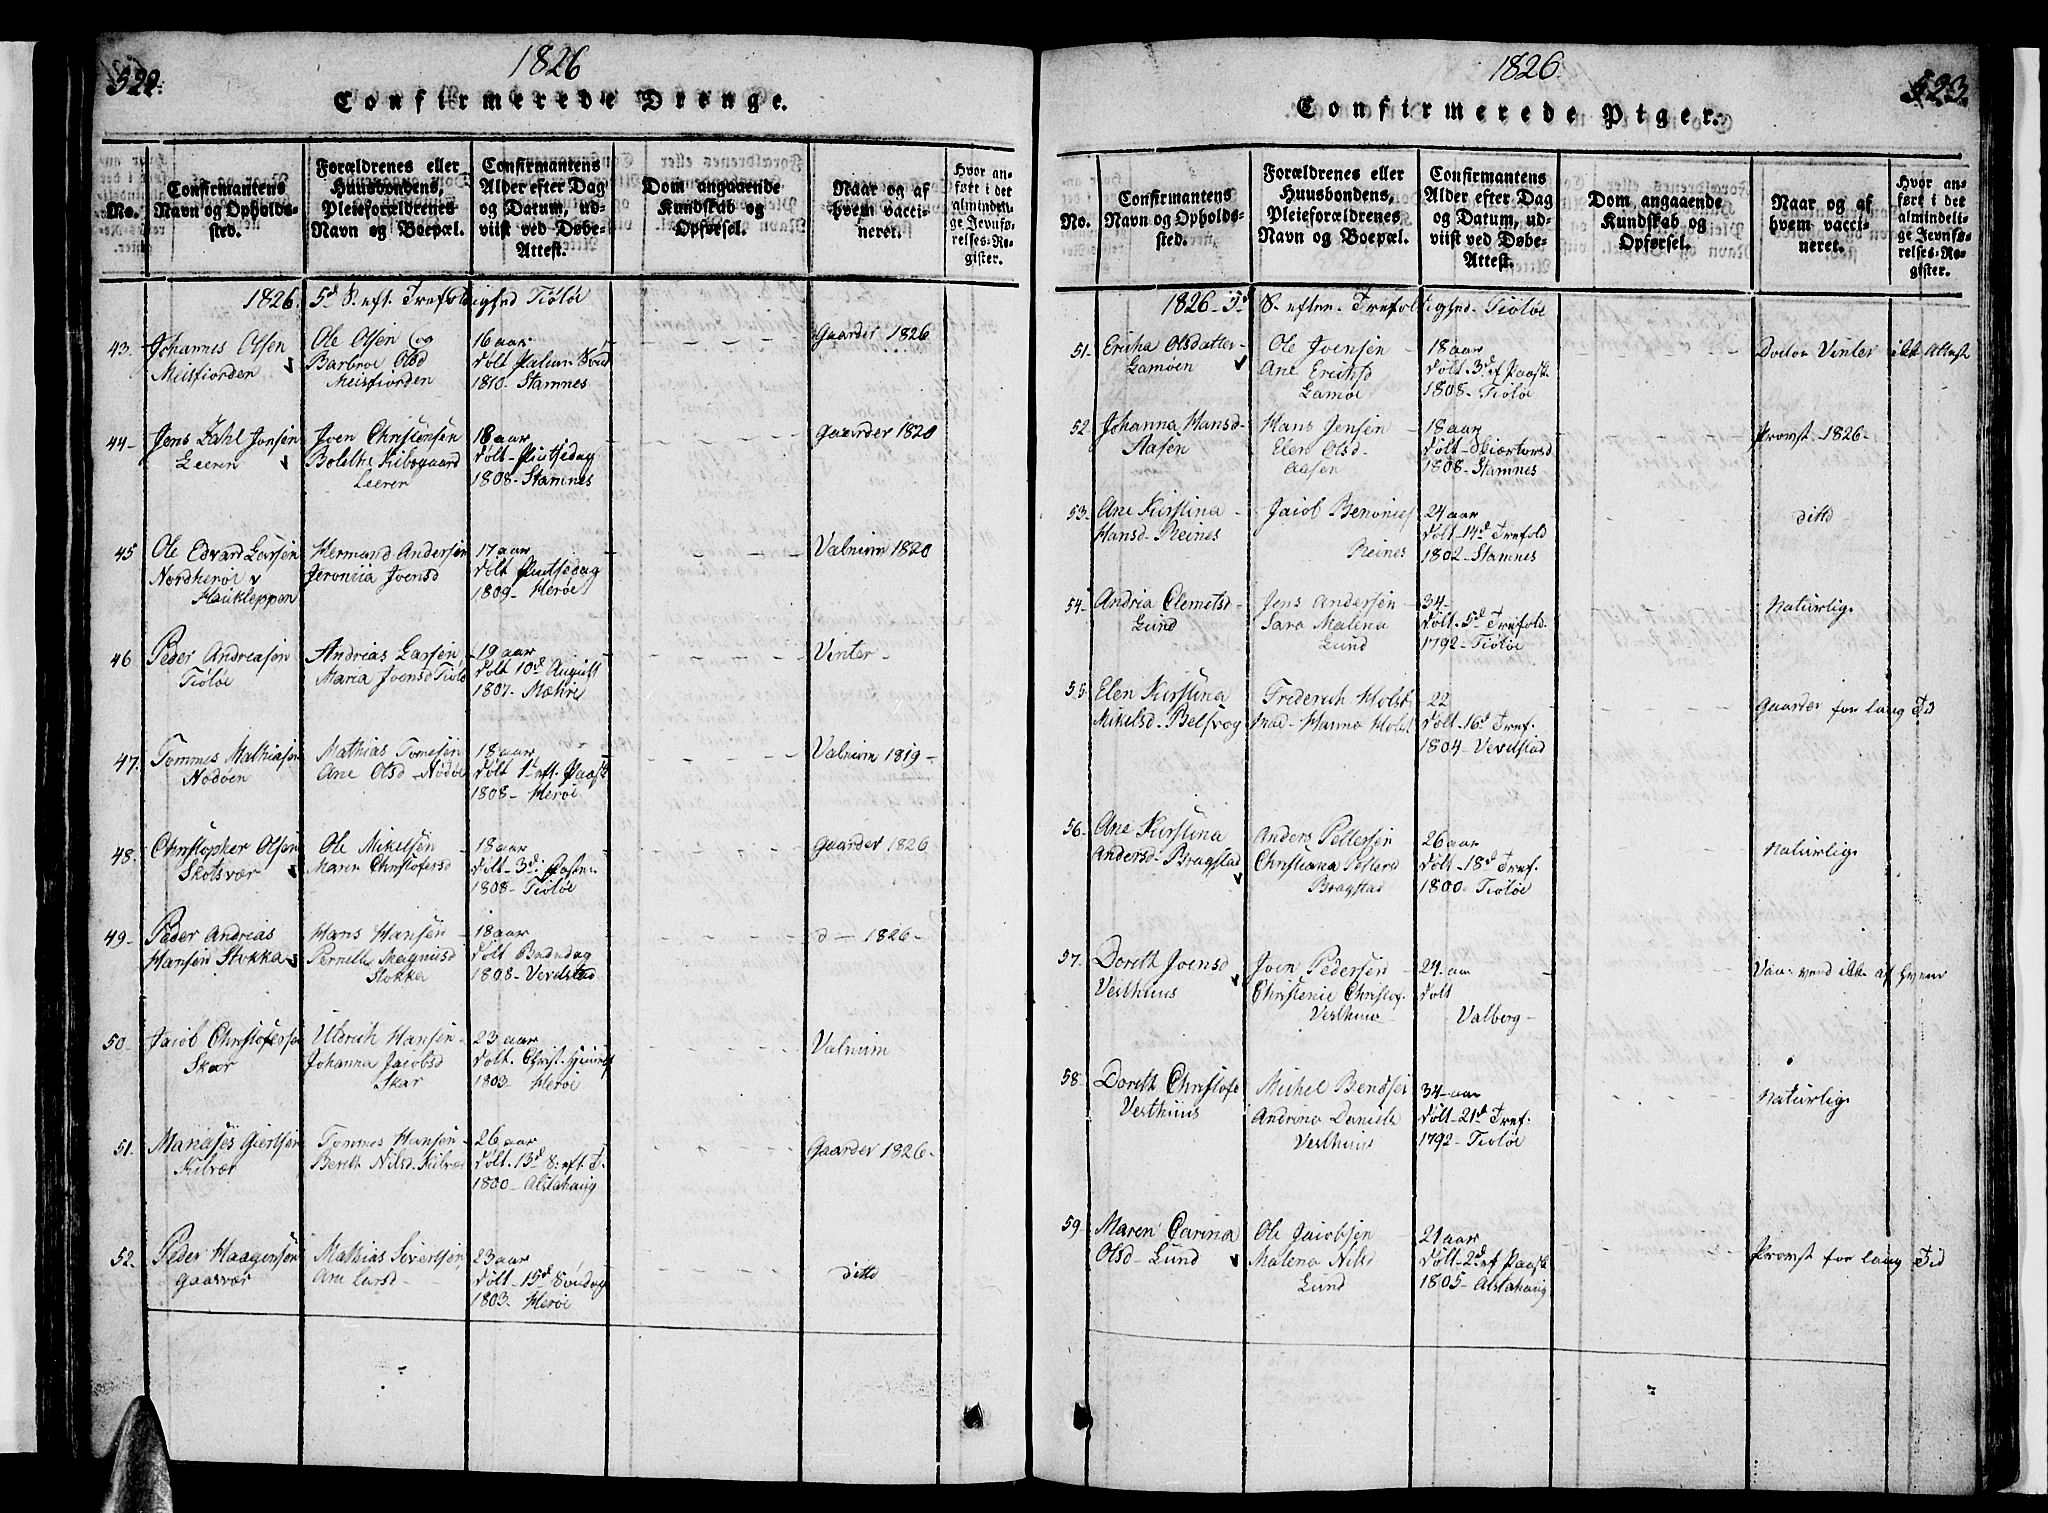 522.
1826
Confirmerede Drenge.
No.
Confirmantens Navn og Opholdssted.
Forældrenes eller Huusbondens, Pleieforældrenes Navn og Boepæl.
Confirmantens Alder efter Dag og Datum, udviist ved Døbe-Attest.
Dom angaaende Kundskab og Opførsel.
Naar og af hvem vaccineret.
Hvor anført i det almindelige Jevnførelses-Register.
1826. 5d S. eft. Trefoldighed Tiøtøe
43. Johannes Olsen
Meisfiorden
Ole Olsen og
Barbroe Olsd
Meisfiorden
16 aar
døbt Palme Sønd
1810. Stamnes
Gaarder 1826
44- Jens Dahl Jonsen
Leeren
Joen Christensen
Bolethe Kibsgaard
Leeren
18 aar
døbt
1808- Stamnes
Gaarder 1820
45 Ole Edvard Larsen
Nordherøe
Haukleppen
Hermand Andersen
Joensd
17 aar
døbt
1809- Herøe
Valnium 1820
46 Peder Andreasen
Tiøtøe
Andreas Larsen
Maria Joensd Tiøtø
19 aar
døbt 10d August
1807- Mæhre
Vinter-
47. Tommes Mathiasen
Nodøen
Mathias Tomesen
Ane Olsd- Nodøe
18 aar
døbt 1st eft. Paask
1808- Herøe
Valnium 1819-
48. Christopher Olsen
Skotsvær
Ole Mikelsen
Maren Christofersd
18 aar
døbt- 3d: Faste
1808- Tiøtøe
Gaarder 1826
49- Peder Andreas
Hansen Stokka
Hans Hansen
Pernelle Magnusd
Stokka
18 aar
døbt Bededag
1808- Vevelstad
d - 1826-
50. Jacob Christofersen
Skar
Uldrich Hansen
Johanna Jacobsd
Skar
23 aar
døbt. Christ. Himmelf
1803. Herøe
Valnium
51. Manases Giertsen
Kilvær
Tommes Hansen
Bereth Nilsd. Kilvær
26 aar
døbt. 13d S. eft. T.
1800- Alstahaug
Gaarder 1826-
52. Peder Haagensen
Gaasvær
Mathias Sivertsen
Ane Larsd
23 aar
døbt- 15d Søndag
1803. Herøe
ditto
523.
1826.
Confirmerede Piger.
No.
Confirmantens Navn og Opholdssted.
Forældrenes eller Huusbondens, Pleieforældrenes Navn og Boepæl.
Confirmantens Alder efter Dag og Datum, udviist ved Døbe-Attest.
Dom angaaende Kundskab og Opførsel.
Naar og af hvem vaccineret.
Hvor anført i det almindelige Jevnførelses-Register.
1826- 5d S. efter Trefoltighed. Tiøtøe
51- Ericha Olsdatter
Lamøen
Ole Joensen
Ane Erichsd
Lamøe
18 aar
døbt. 3d ef Paask
1808- Tiøtøe
Doctor Vinter Attest
52 Johanna Hansd-
Aasen
Hans Jensen
Elen Olsd-
Aasen
18 aar
døbt- Skiærtorsd
1808- Stamnes
Provst 1826-
53. Ane Kirstina
Hansd- Reines
Jacob Benonies
Reines
24 aar
døbt- 14d Trefold
1802- Stamnes
ditto
54. Andria Clemetsd-
Lund
Jens Andersen
Sara Malena
Lund
34-
døbt. 5d Trefold.
1792- Tiøtøe
Naturlig.
55. Elen Kirstina
Mikelsd- Belsvog
Friderich Holst
Mad- Hanna Holst
22
døbt- 16d Tref-
1804- Vevelstad
Gaarder for lang Tid
56. Ane Kirstina
Andersd- Bragstad
Anders Pettersen
Christiana Petters
Bragstad
26 aar
døbt- 18d Tref.
1800- Tiøtøe
Naturlig.
57. Doreth Joensd
Vesthuus
Joen Pedersen
Christenie Christof.
Vesthuus
24. aar
døbt
Valberg-
af hvem
58- Doreth Christofe
Vesthuus
Michel Bendsen
Andrina Daniels
Vesthuus
34- aar
døbt- 21d Tref.
1792- Tiøtøe
Naturlig
59- Maren Carina
Olsd- Lund
Ole Jacobsen
Malena Nilsd
Lund
21 aar
døbt- 2d ef Paask
1805- Alstahaug
Provst for lang Tid